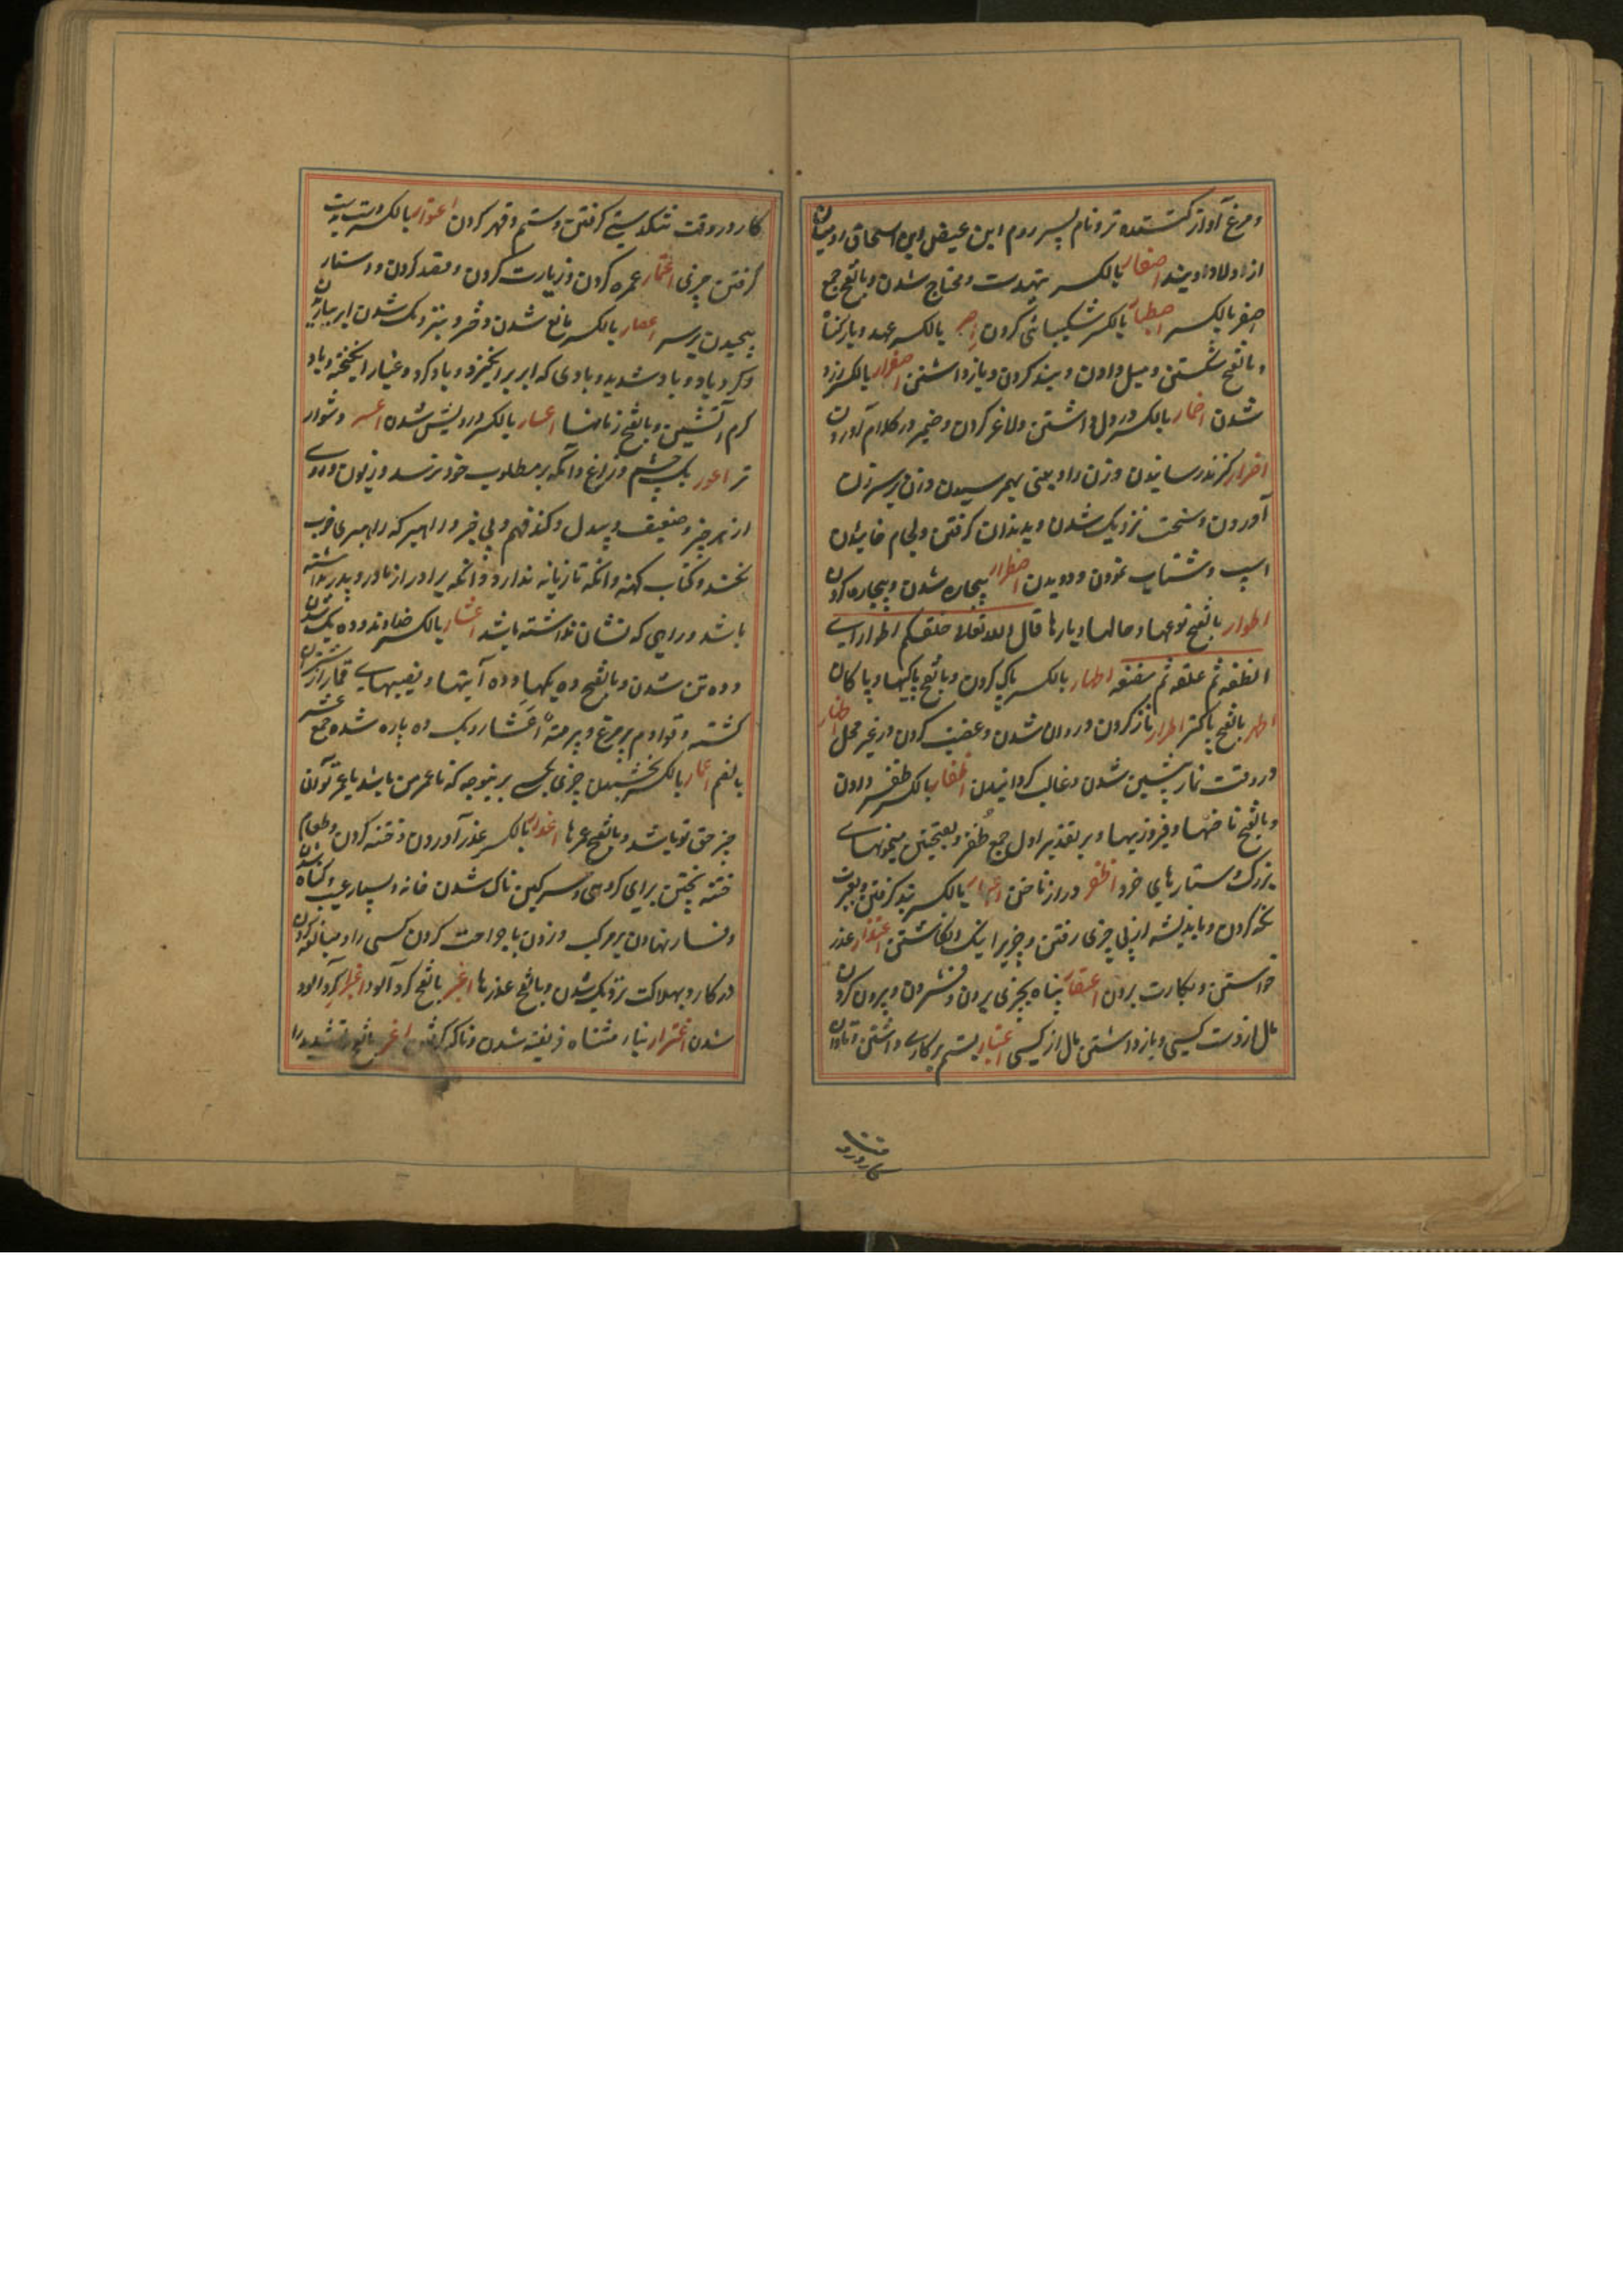 و مرغ آواز کننده تر و نام پسر روم ابن عیص ابن اسحاق رومیان
از اولاد اویند اصفار بالکسر تهیدست و محتاج شدن و بالفتح جمع
صفر بالکسر اصطبار بالکسر شکیبائی کردن اصر بالکسر عهد و بار کناه
و بالفتح شکستن و میل دادن و بند کردن و بازداشتن اصفرار بالکسر زرد
شدن اضمار بالکسر در دل داشتن و لاغر کردن و ضمیر در کلام آوردن
اضرار کزند رسانیدن و زن را دیعنی بهم رسیدن و زن بر سر زن
آوردن و سخت نزدیک شدن و بدندان کرفتن و لجام خائیدن
اسپ و شتاب نمودن و دویدن اضطرار بیچاره شدن و بیچاره کردن
اطوار بالفتح نوعها و حالها و بارها قال الله تعالی خلقکم اطوارا ای
نطفه ثم علقه ثم مضغه اطهار بالکسر پاک کردن و بالفتح پاکیها و پاکان
اطهر بالفتح پاکتر اطرار ناز کردن و روان شدن و غضب کردن در غیر محل اظهار
در وقت نماز پیشین شدن و غالب کردانیدن اظفار بالکسر ظفر دادن
و بالفتح ناخنها و فیروزیها و بر تقدیر اول جمع ظفر و بفتحتین میخونهای
بزرک و ستارهای خرد اظفر دراز ناخن اعتبار بالکسر پند کرفتن و بعبرت
نکه کردن و باندیشه از پی چیزی رفتن و چیزیرا نیک انکاشتن اعتذار عذر
خواستن و بکارت بردن اعتصار پناه بچیزی بردن و فشردن و بیرون کردن
مال از دست کسی و بازداشتن مال از کسی اعتبار بستم بر کاری داشتن و تاوان
کار در وقت
کار در وقت تنکدستی کرفتن و ستم و قهر کردن اعتوار بالکسر دست بدست
کرفتن چیزی اعتمار عمره کردن و زیارت کردن و قصد کردن و دستار
پیچیدن بر سر اعصار بالکسر بالغ شدن دختر و نزدیک شدن ابر بباریدن
و کرد باد و باد شدید و بادی که ابر برانکیزد و باد کرد و غبار انکیخته و باد
کرم آتشین و بالفتح زمانها اعسار بالکسر درویش شدن اعسر دشوار
تر اعور یک چشم و زاغ و آنکه بر مطلوب خود نرسد و زبون و بدی
از هر چیز و ضعیف و بیدل و کند فهم و بی خبر و راهبر که راهبری خوب
نکند و کتاب کهنه و آنکه تازیانه ندارد و آنکه برادر از مادر و پدر نداشته
باشد و راهی که نشان نداشته باشد اعشار بالکسر خداوند ده یک شدن
و ده تن شدن و بالفتح ده یکها و ده آیتها و نصیبهای قمار از شتران
کشته و قوادم پر مرغ و برمة اعشار دیک ده پاره شده جمع عشر
بالضم اعمار بالکسر بخشیدن چیزی بکسی بر ینوجه که تا عمر من باشد یا عمر تو آن
چیز حق تو باشد و بالفتح عمرها اعذار بالکسر عذر آوردن و ختنه کردن و طعام
ختنه پختن برای کروهی و سرکین ناک شدن خانه و بسیار عیب و کناه شدن
و فسار نهادن بر مرکب و زدن با جراحت کردن کسی را و مبالغه کردن
در کار و بهلاکت نزدیک شدن و بالفتح عذرها اغبر بالفتح کرد آلود اغبرار کرد آلود
شدن اغترار بتاء مثناه فریفته شدن و ناکه کرفتن اغر بالفتح و تشدید را